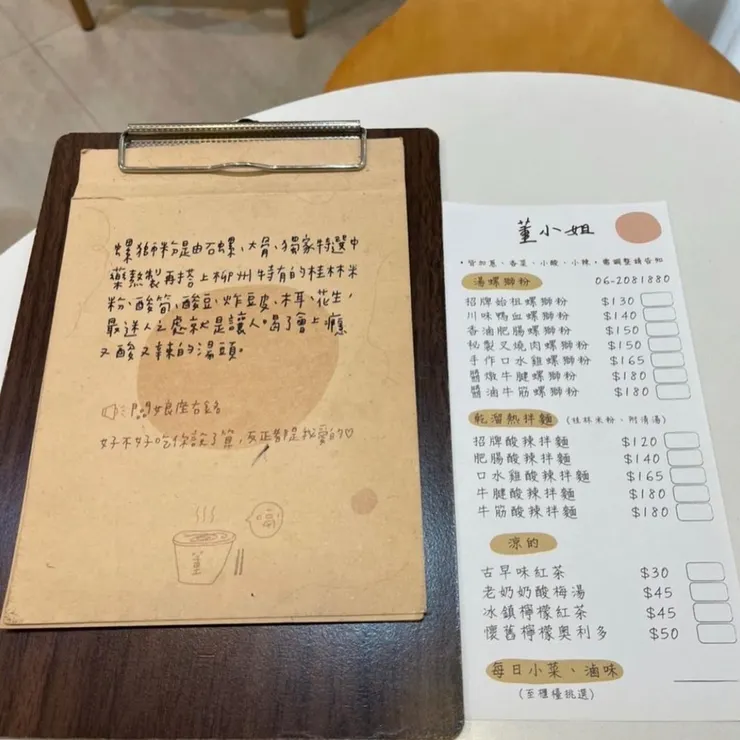 螺獅粉是由石螺、大骨、獨家特選中
藥熬製再搭上柳州特有的桂林米
粉、酸筍、酸豆、炸豆皮、木耳、花生,
最迷人之處就是讓人喝了會上癮
又酸又辣的湯頭。
闆娘座右銘
好不好吃你說了算,反正都是我愛的♡
董
董小姐
•皆加蔥、香菜、小酸、小辣,需調整請告知
湯螺獅粉 06-2081880
招牌始祖螺獅粉 $130
川味鴨血螺獅粉 $140
香滷肥腸螺獅粉 $150
秘製叉燒肉螺獅粉 $150
手作口水雞螺獅粉 $165
醬燉牛腱螺獅粉 $180
醬滷牛筋螺獅粉 $180
乾溜熱拌麵 (桂林米粉、附清湯)
招牌酸辣拌麵 $120
肥腸酸辣拌麵 $140
口水雞酸辣拌麵 $165
牛腱酸辣拌麵 $180
牛筋酸辣拌麵 $180
涼的
古早味紅茶 $30
老奶奶酸梅湯 $45
冰鎮檸檬紅茶 $45
懷舊檸檬奧利多 $50
每日小菜、滷味
(至櫃檯挑選)